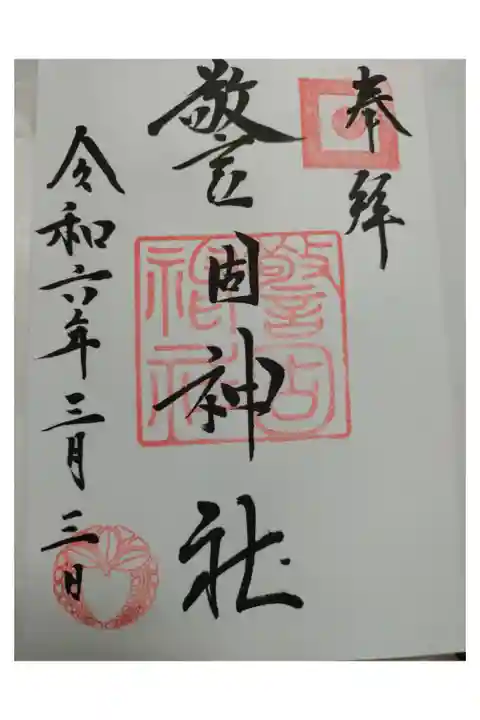 奉拜
警固神社
警固
神社
令和六年三月三日